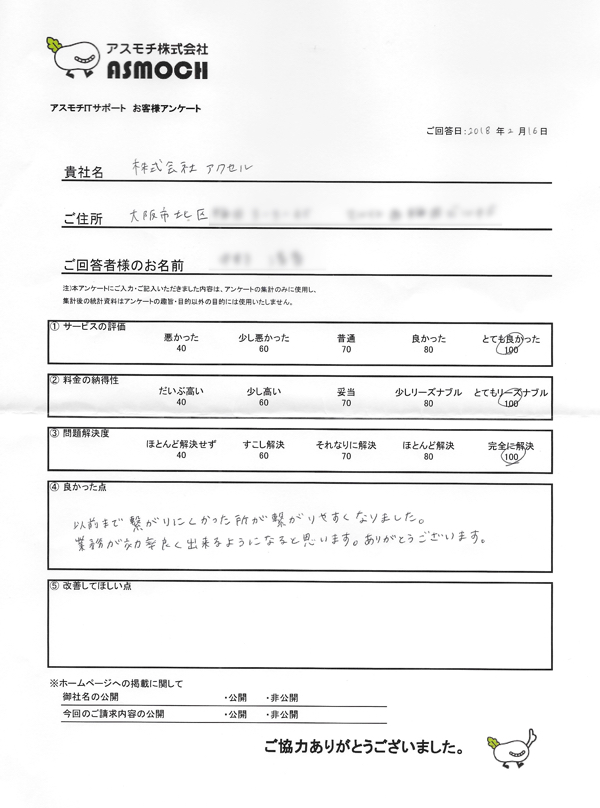 アスモチ株式会社
ASMOCH
アスモチITサポート お客様アンケート
ご回答日:2018年2月16日
貴社名 株式会社 アクセル
ご住所 大阪市北区
ご回答者様のお名前
注)本アンケートにご入力・ご記入いただきました内容は、アンケートの集計のみに使用し、
集計後の統計資料はアンケートの趣旨・目的以外の目的には使用いたしません。
① サービスの評価
悪かった 少し悪かった 普通 良かった とても良かった
40 60 70 80 100
② 料金の納得性
だいぶ高い 少し高い 妥当 少しリーズナブル とてもリーズナブル
40 60 70 80 100
③ 問題解決度
ほとんど解決せず すこし解決 それなりに解決 ほとんど解決 完全に解決
40 60 70 80 100
④ 良かった点
以前まで繋がりにくかった所が繋がりやすくなりました。
業務が効率良く出来るようになると思います。ありがとうございます。
⑤ 改善してほしい点
※ホームページへの掲載に関して
御社名の公開 ・公開 ・非公開
今回のご請求内容の公開 ・公開 ・非公開
ご協力ありがとうございました。